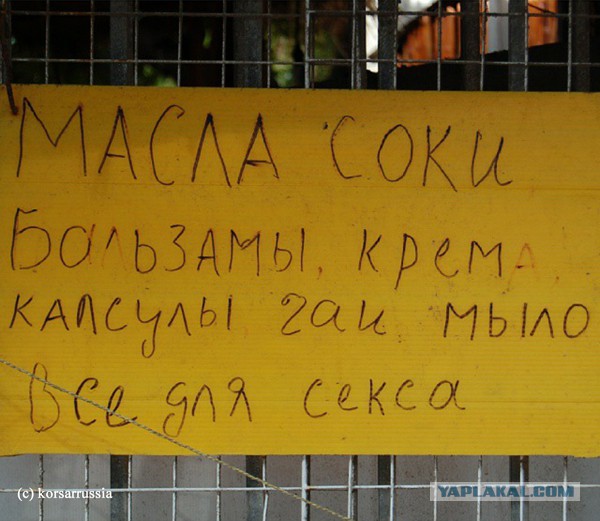 МАСЛА СОКИ
Бальзамы, крема,
капсулы чаи мыло
Все для секса
(c) korsarrussia
YAPLAKAL.COM